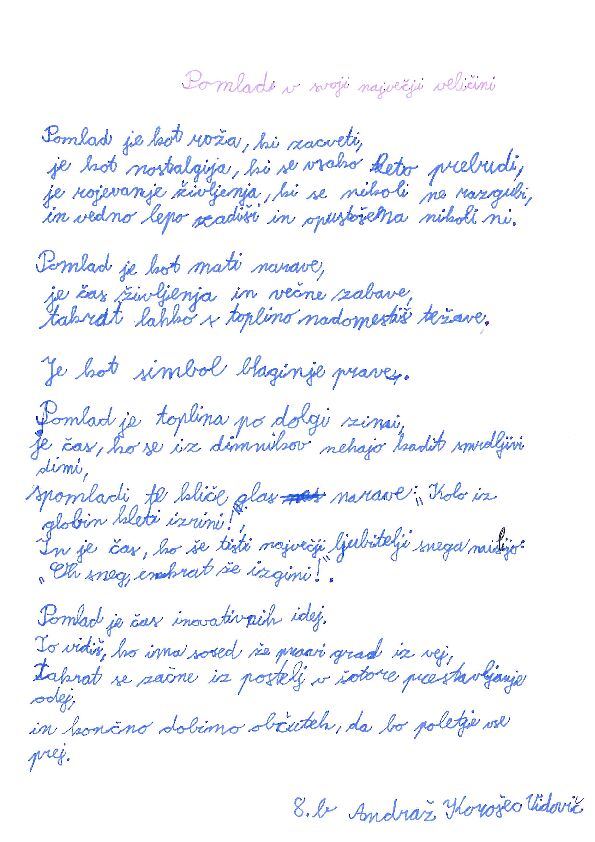 Pomlad v svoji največji veličini
Pomlad je kot roža, ki zacveti,
je kot nostalgija, ki se vsako leto prebudi,
je rojevanje življenja, ki se nikoli ne razgubi,
in vedno lepo zadiši in opustošena nikoli ni.
Pomlad je kot mati narave,
je čas življenja in večne zabave,
takrat lahko s toplino nadomestiš težave.
Je kot simbol blaginje prave.
Pomlad je toplina po dolgi zimi,
je čas, ko se iz dimnikov nehajo kadit smrdljivi
dimi,
spomladi te kliče glas narave: "Kolo iz
globin kleti izrini!",
In je čas, ko še tisti največji ljubitelji snega mislijo:
"Oh sneg, enkrat že izgini!".
Pomlad je čas inovativnih idej.
To vidiš, ko ima sosed že pravi grad iz vej,
takrat se začne iz postelj v šotore prestavljanje
odej,
in končno dobimo občutek, da bo poletje vse
prej.
8.b Andraž Korošec Vidovič